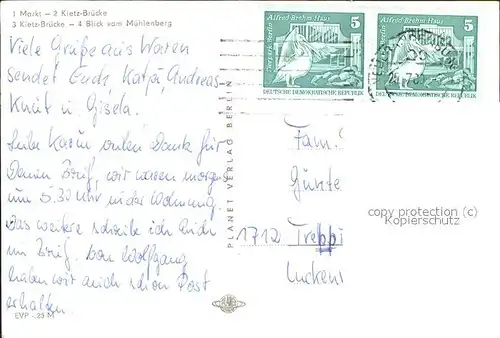 1 Markt — 2 Kietz-Brücke
3 Kietz-Brücke — 4 Blick vom Mühlenberg
Viele Grüße aus Waren
sendet Euch Katja, Andreas
Knut u. Gisela.
Liebe Karin vielen Dank für
Deinen Brief, wir waren morgens
um 5.30 Uhr in der Wohnung.
Das weitere schreibe ich Euch
im Brief. Von Wolfgang
haben wir auch schon Post
erhalten.
EVP -,23 M
PLANET VERLAG BERLIN
Alfred-Brehm-Haus 5
Tierpark Berlin
DEUTSCHE DEMOKRATISCHE REPUBLIK
Alfred-Brehm-Haus 5
DEUTSCHE DEMOKRATISCHE REPUBLIK
Fam.
Günte
1712 Trebbi
Lucken
copy protection (c)
Kopierschutz